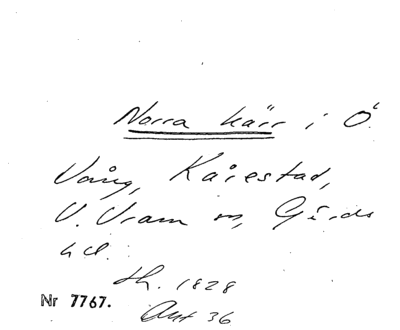 Norra kärr i Ö.
Vång, Kårestad,
V. Vram m, Gärds
hd.
th. 1828
Nr 7767.
Akt 36